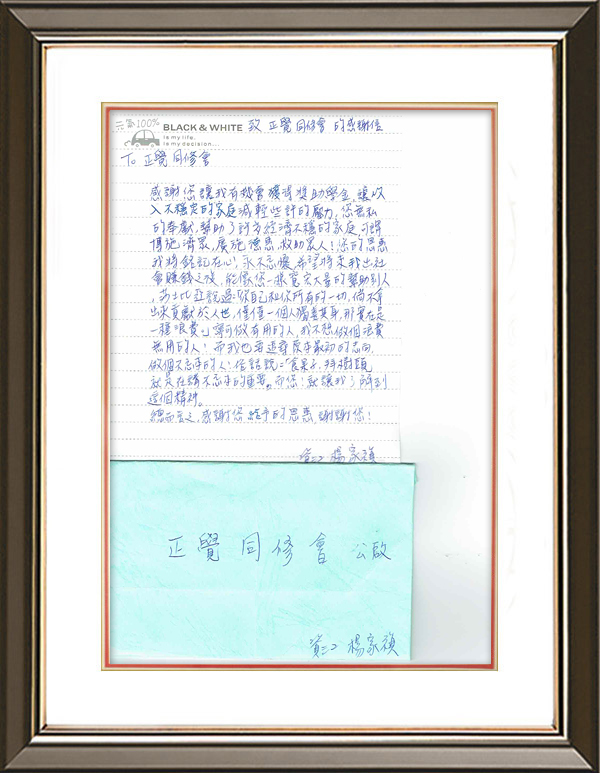 元氣100%
BLACK & WHITE 致 正覺同修會 的感謝信
is my life.
is my decision...
To 正覺同修會
感謝您讓我有機會獲得獎助學金,讓收
入不穩定的家庭減輕些許的壓力,您無私
的奉獻,幫助了許多經濟不穩的家庭,可謂
博施濟眾,廣施德惠,救助眾人!您的恩惠
我將銘記在心!永不忘懷,希望將來我出社
會賺錢之後,能像您一樣寬宏大量的幫助別人
,莎士比亞說過:「你自己和你所有的一切,倘不拿
出來貢獻於人世,僅僅一個人獨善其身,那實在是
一種浪費。」寧可做有用的人,我不想做個浪費
無用的人!而我也要追尋原本最初的志向,
做個不忘本的人!俗話說:「食果子,拜樹頭
就是在講不忘本的重要。而您!就讓我了解到
這個精神。
總而言之,感謝您給予的恩惠,謝謝您!
楊家禎
正覺同修會 公啟
楊家禎